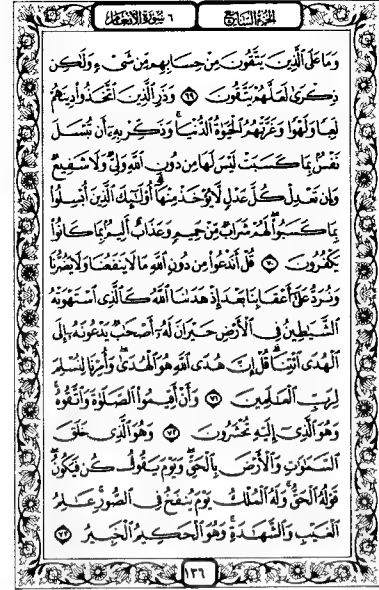 الجزء السابع
٦ سورة الأنعام
وَمَا عَلَى ٱلَّذِينَ يَتَّقُونَ مِنْ حِسَابِهِم مِّن شَىْءٍ وَلَٰكِن
ذِكْرَىٰ لَعَلَّهُمْ يَتَّقُونَ ٦٩ وَذَرِ ٱلَّذِينَ ٱتَّخَذُوا۟ دِينَهُمْ
لَعِبًا وَلَهْوًا وَغَرَّتْهُمُ ٱلْحَيَوٰةُ ٱلدُّنْيَا ۚ وَذَكِّرْ بِهِۦٓ أَن تُبْسَلَ
نَفْسٌۢ بِمَا كَسَبَتْ لَيْسَ لَهَا مِن دُونِ ٱللَّهِ وَلِىٌّ وَلَا شَفِيعٌ
وَإِن تَعْدِلْ كُلَّ عَدْلٍ لَّا يُؤْخَذْ مِنْهَآ ۗ أُو۟لَٰٓئِكَ ٱلَّذِينَ أُبْسِلُوا۟
بِمَا كَسَبُوا۟ ۖ لَهُمْ شَرَابٌ مِّنْ حَمِيمٍ وَعَذَابٌ أَلِيمٌۢ بِمَا كَانُوا۟
يَكْفُرُونَ ٧٠ قُلْ أَنَدْعُوا۟ مِن دُونِ ٱللَّهِ مَا لَا يَنفَعُنَا وَلَا يَضُرُّنَا
وَنُرَدُّ عَلَىٰٓ أَعْقَابِنَا بَعْدَ إِذْ هَدَىٰنَا ٱللَّهُ كَٱلَّذِى ٱسْتَهْوَتْهُ
ٱلشَّيَٰطِينُ فِى ٱلْأَرْضِ حَيْرَانَ لَهُۥٓ أَصْحَٰبٌ يَدْعُونَهُۥٓ إِلَى
ٱلْهُدَى ٱئْتِنَا ۗ قُلْ إِنَّ هُدَى ٱللَّهِ هُوَ ٱلْهُدَىٰ ۖ وَأُمِرْنَا لِنُسْلِمَ
لِرَبِّ ٱلْعَٰلَمِينَ ٧١ وَأَنْ أَقِيمُوا۟ ٱلصَّلَوٰةَ وَٱتَّقُوهُ ۚ
وَهُوَ ٱلَّذِىٓ إِلَيْهِ تُحْشَرُونَ ٧٢ وَهُوَ ٱلَّذِى خَلَقَ
ٱلسَّمَٰوَٰتِ وَٱلْأَرْضَ بِٱلْحَقِّ ۖ وَيَوْمَ يَقُولُ كُن فَيَكُونُ ۚ
قَوْلُهُ ٱلْحَقُّ ۚ وَلَهُ ٱلْمُلْكُ يَوْمَ يُنفَخُ فِى ٱلصُّورِ ۚ عَٰلِمُ
ٱلْغَيْبِ وَٱلشَّهَٰدَةِ ۚ وَهُوَ ٱلْحَكِيمُ ٱلْخَبِيرُ ٧٣
١٣٦